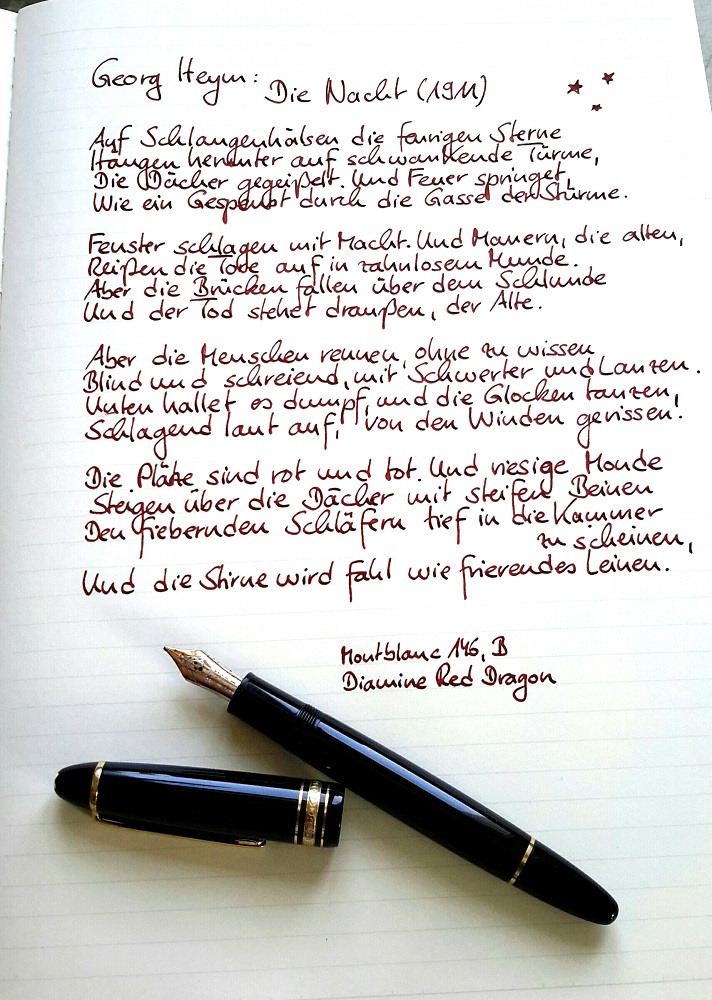 Georg Heym: Die Nacht (1911)
Auf Schlangenhälsen die feurigen Sterne
Hängen herunter auf schwankende Türme,
Die Dächer gegeißelt. Und Feuer springet,
Wie ein Gespenst durch die Gasse der Stürme.
Fenster schlagen mit Macht. Und Mauern, die alten,
Reißen die Tore auf in zahnlosem Munde.
Aber die Brücken fallen über dem Schlunde
Und der Tod stehet draußen, der Alte.
Aber die Menschen rennen, ohne zu wissen
Blind und schreiend, mit Schwerter und Lanzen.
Unten hallet es dumpf, und die Glocken tanzen,
Schlagend laut auf, von den Winden gerissen.
Die Plätze sind rot und tot. Und riesige Monde
Steigen über die Dächer mit steifen Beinen
Den fiebernden Schläfern tief in die Kammer
zu scheinen,
Und die Stirne wird fahl wie frierendes Leinen.
Montblanc 146, B
Diamine Red Dragon